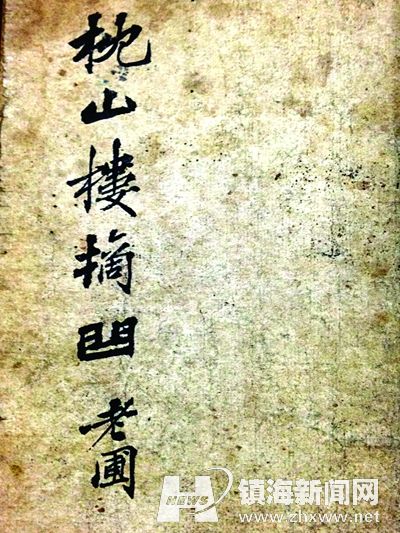 枕山樓摘 老圃
H NEWS 镇海新闻网
www.zhxww.net